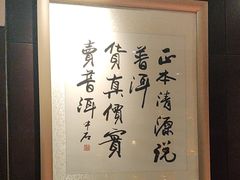 正本清源说
普洱
货真價實
賣普洱